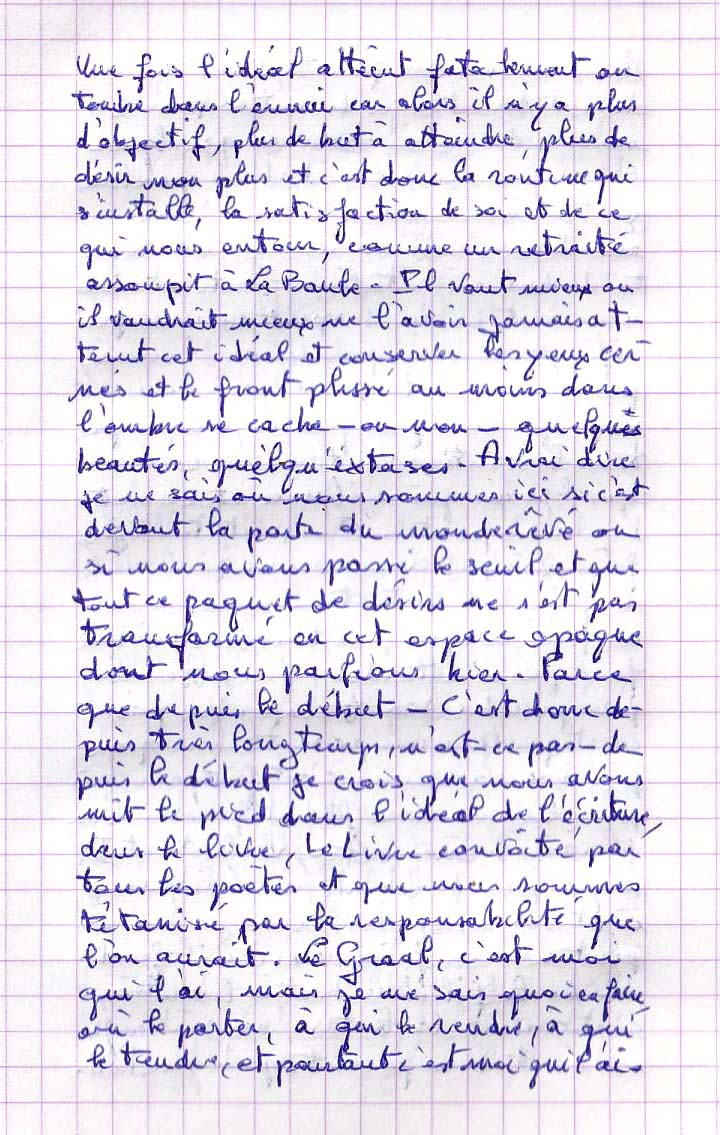 Une fois l'idéal atteint fatalement on
tombe dans l'ennui car alors il n'y a plus
d'objectif, plus de but à atteindre, plus de
désir non plus et c'est donc la routine qui
s'installe, la satisfaction de soi et de ce
qui nous entour, comme un retraité
assoupit à La Baule - Il vaut mieux ou
il vaudrait mieux ne l'avoir jamais at-
teint cet idéal et conserver les yeux cer-
nés et le front plissé au moins dans
l'ombre se cache - ou non - quelques
beautés, quelqu'extases. A vrai dire
je ne sais où nous sommes ici si c'est
devant la porte du monde rêvé ou
si nous avons passé le seuil et que
tout ce paquet de désirs ne s'est pas
transformé en cet espace opaque
dont nous parlions hier. Parce
que depuis le début - C'est donc de-
puis très longtemps, n'est-ce pas - de
puis le début je crois que nous avons
mit le pied dans l'idéal de l'écriture,
dans le livre, Le Livre convoité par
tous les poètes et que nous sommes
tétanisé par la responsabilité que
l'on aurait. Le Graal, c'est moi
qui l'ai, mais je ne sais quoi en faire,
où le porter, à qui le rendre, à qui
le tendre, et pourtant c'est moi qui l'ai.